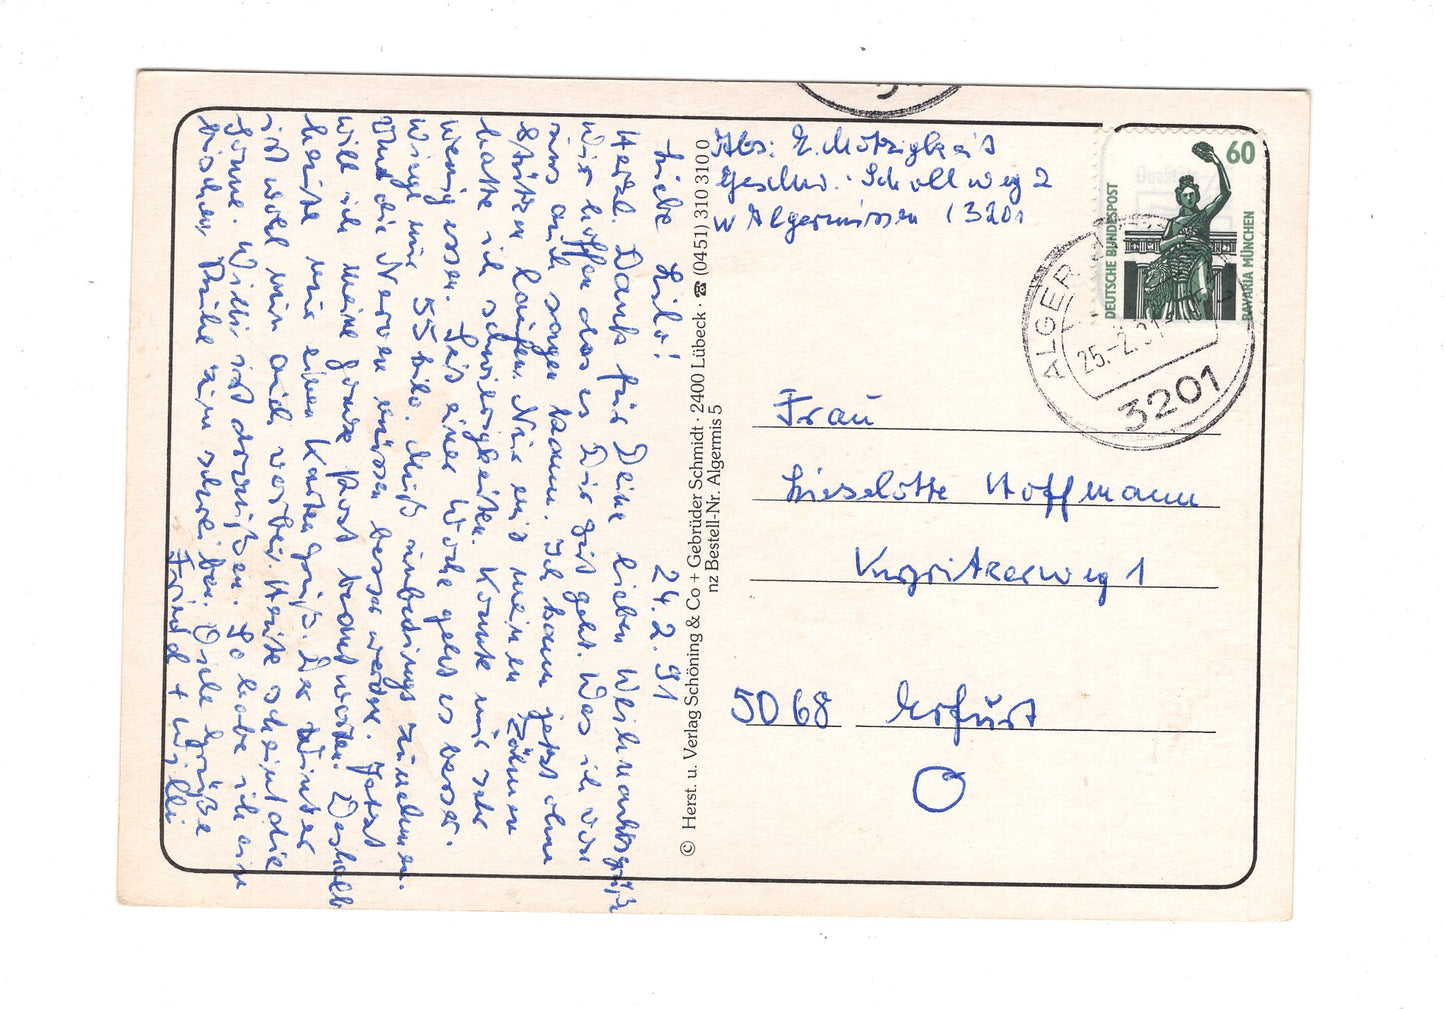 24.2.91
Liebe Lilo!
Herzl. Dank für Deine lieben Weihnachtsgrüße
Wir hoffen das es Dir gut geht. Was ich von
uns auch sagen kann. Ich kann jetzt ohne
Stützen laufen. Nur mit meinen Zähnen
hatte ich schwierigkeiten. Konnte nur sehr
wenig essen. Seit einer Woche geht es besser.
Wiege nur 55 kilo. Muß unbedingt zunehmen.
Und die Nerven müssen besser werden. Jetzt
will ich meine ganze Post beantworten. Deshalb
heute nur einen Kartengruß. Der Winter
ist wohl nun auch vorbei. Heute scheint die
Sonne. Willi ist draußen. So habe ich ein
bischen Ruhe zum schreiben. Viele Grüße
+ Willi
© Herst. u. Verlag Schöning & Co + Gebrüder Schmidt · 2400 Lübeck · ☎ (0451) 310 310 0
nz Bestell-Nr. Algermis 5
Abs: E.
Geschw.-Scholl weg 2
W Algermissen (3201
60
DEUTSCHE BUNDESPOST
BAVARIA MÜNCHEN
ALGER
25.-2.91
3201
Frau
Lieselotte Hoffmann
1
5068 Erfurt
O